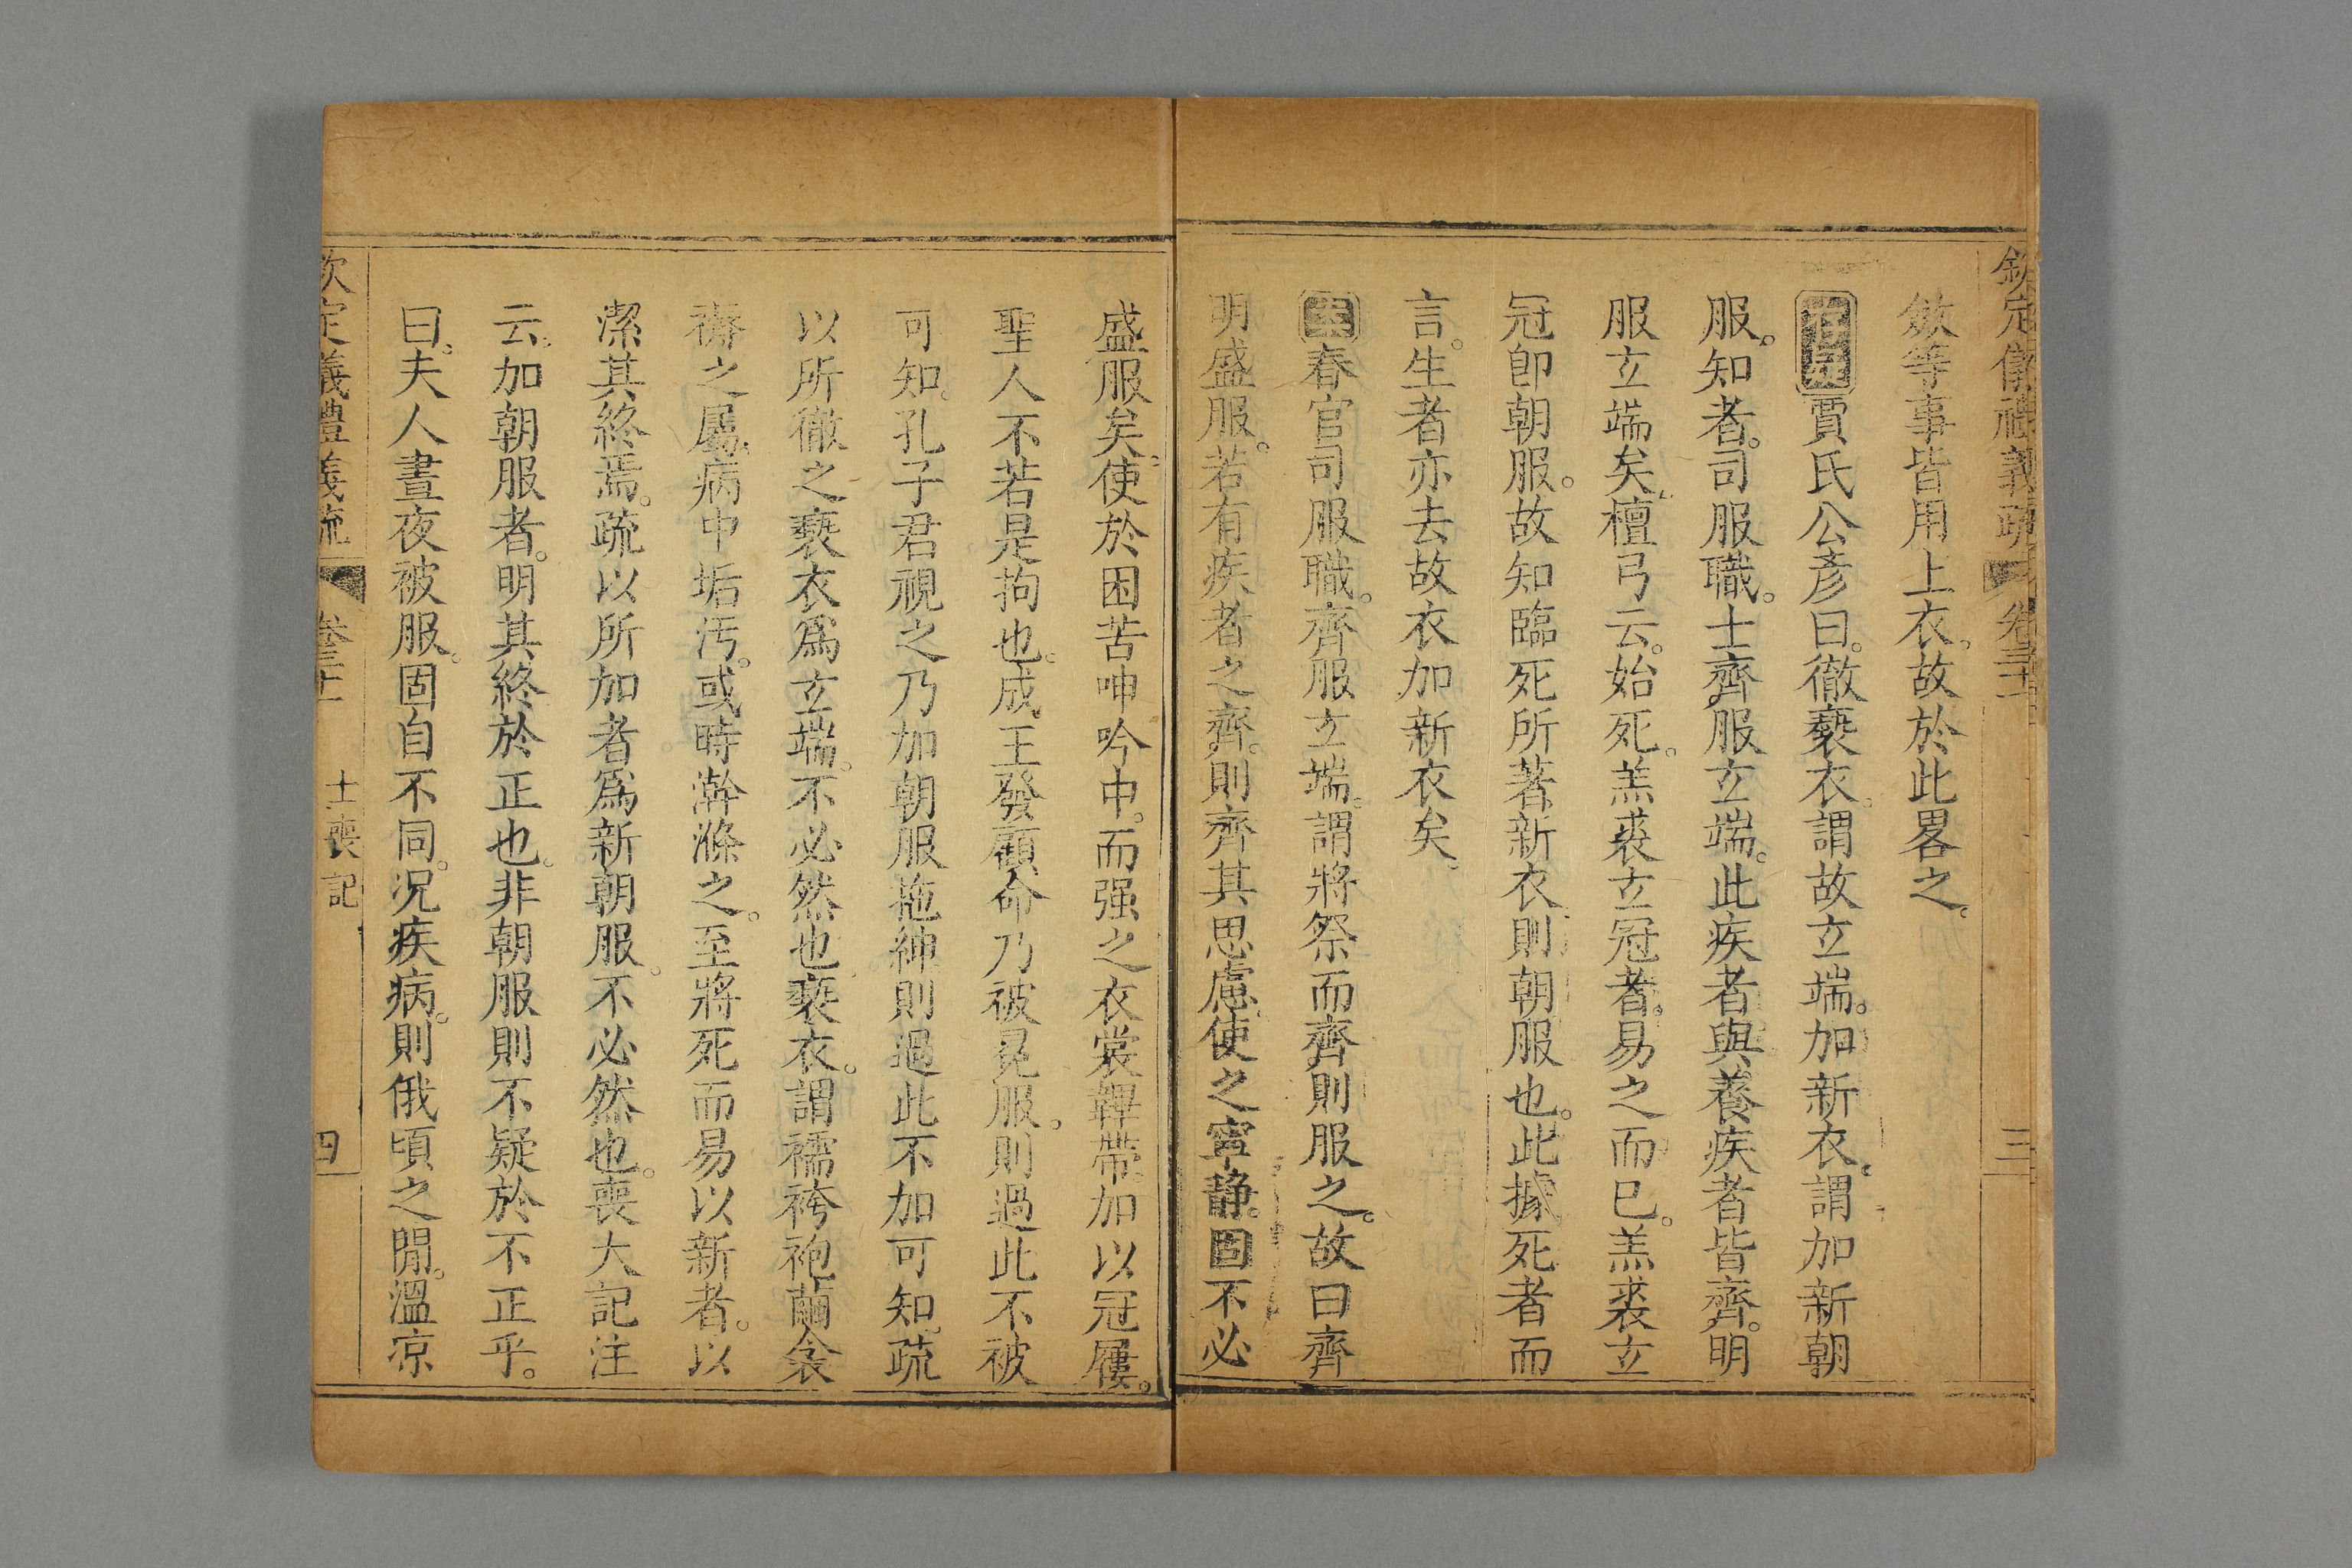 欽定儀禮義疏 卷三十一 三
斂等事皆用上衣。故於此畧之。
賈氏公彥曰。徹褻衣。謂故玄端。加新衣。謂加新朝
服。知者。司服職。士齊服玄端。此疾者與養疾者皆齊。明
服玄端矣。檀弓云。始死。羔裘玄冠者。易之而已。羔裘玄
冠卽朝服。故知臨死所著新衣。則朝服也。此據死者而
言。生者亦去故衣加新衣矣。
案春官司服職。齊服玄端。謂將祭而齊則服之。故曰齊
明盛服。若有疾者之齊。則齊其思慮。使之寧静。固不必
盛服矣。使於困苦呻吟中。而强之衣裳韠帶。加以冠屨。
聖人不若是拘也。成王發顧命乃被冕服。則過此不被
可知。孔子君視之乃加朝服拖紳則過此不加可知。疏
以所徹之褻衣爲玄端。不必然也。褻衣。謂襦袴袍繭衾
褥之屬。病中垢汚。或時澣滌之。至將死而易以新者。以
潔其終焉。疏以所加者爲新朝服。不必然也。喪大記注
云。加朝服者。明其終於正也。非朝服則不疑於不正乎。
曰。夫人晝夜被服。固自不同。况疾病。則俄頃之閒。溫凉
欽定義禮義疏 卷三十一 士喪記 四